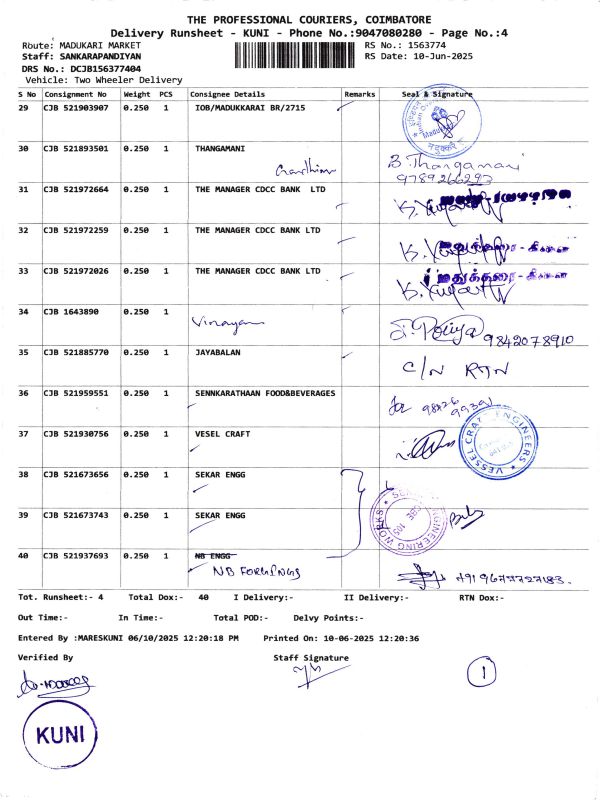 THE PROFESSIONAL COURIERS, COIMBATORE
Delivery Runsheet - KUNI - Phone No.:9047080280 - Page No.:4
Route: MADUKARI MARKET RS No.: 1563774
Staff: SANKARAPANDIYAN RS Date: 10-Jun-2025
DRS No.: DCJB156377404
Vehicle: Two Wheeler Delivery
S No Consignment No Weight PCS Consignee Details Remarks Seal & Signature
29 CJB 521903907 0.250 1 IOB/MADUKKARAI BR/2715
30 CJB 521893501 0.250 1 THANGAMANI
B. Thangamani
9789266292
31 CJB 521972664 0.250 1 THE MANAGER CDCC BANK LTD
32 CJB 521972259 0.250 1 THE MANAGER CDCC BANK LTD
33 CJB 521972026 0.250 1 THE MANAGER CDCC BANK LTD
34 CJB 1643890 0.250 1
Vinayagam 9842078910
35 CJB 521885770 0.250 1 JAYABALAN
C/N RTN
36 CJB 521959551 0.250 1 SENNKARATHAAN FOOD&BEVERAGES
37 CJB 521930756 0.250 1 VESEL CRAFT
VESSEL CRAFT ENGINEERS
38 CJB 521673656 0.250 1 SEKAR ENGG
39 CJB 521673743 0.250 1 SEKAR ENGG
40 CJB 521937693 0.250 1 NB ENGG
NB FORGINGS
Tot. Runsheet:- 4 Total Dox:- 40 I Delivery:- II Delivery:- RTN Dox:-
Out Time:- In Time:- Total POD:- Delvy Points:-
Entered By :MARESKUNI 06/10/2025 12:20:18 PM Printed On: 10-06-2025 12:20:36
Verified By Staff Signature
1
KUNI